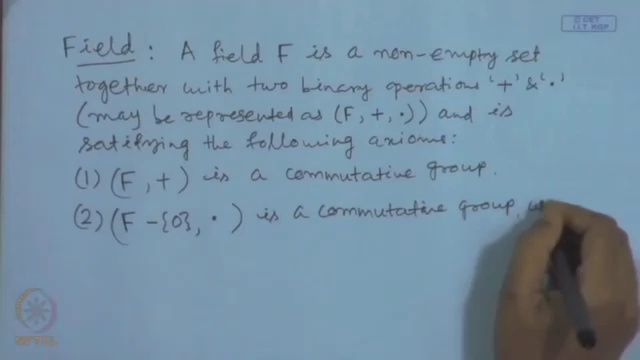 © CET
I.I.T. KGP
Field : A field F is a non-empty set
together with two binary operations '+' & '·'
(may be represented as (F, +, ·)) and is
satisfying the following axioms:
(1) (F, +) is a commutative group.
(2) (F - {0}, ·) is a commutative group, w
NPTEL